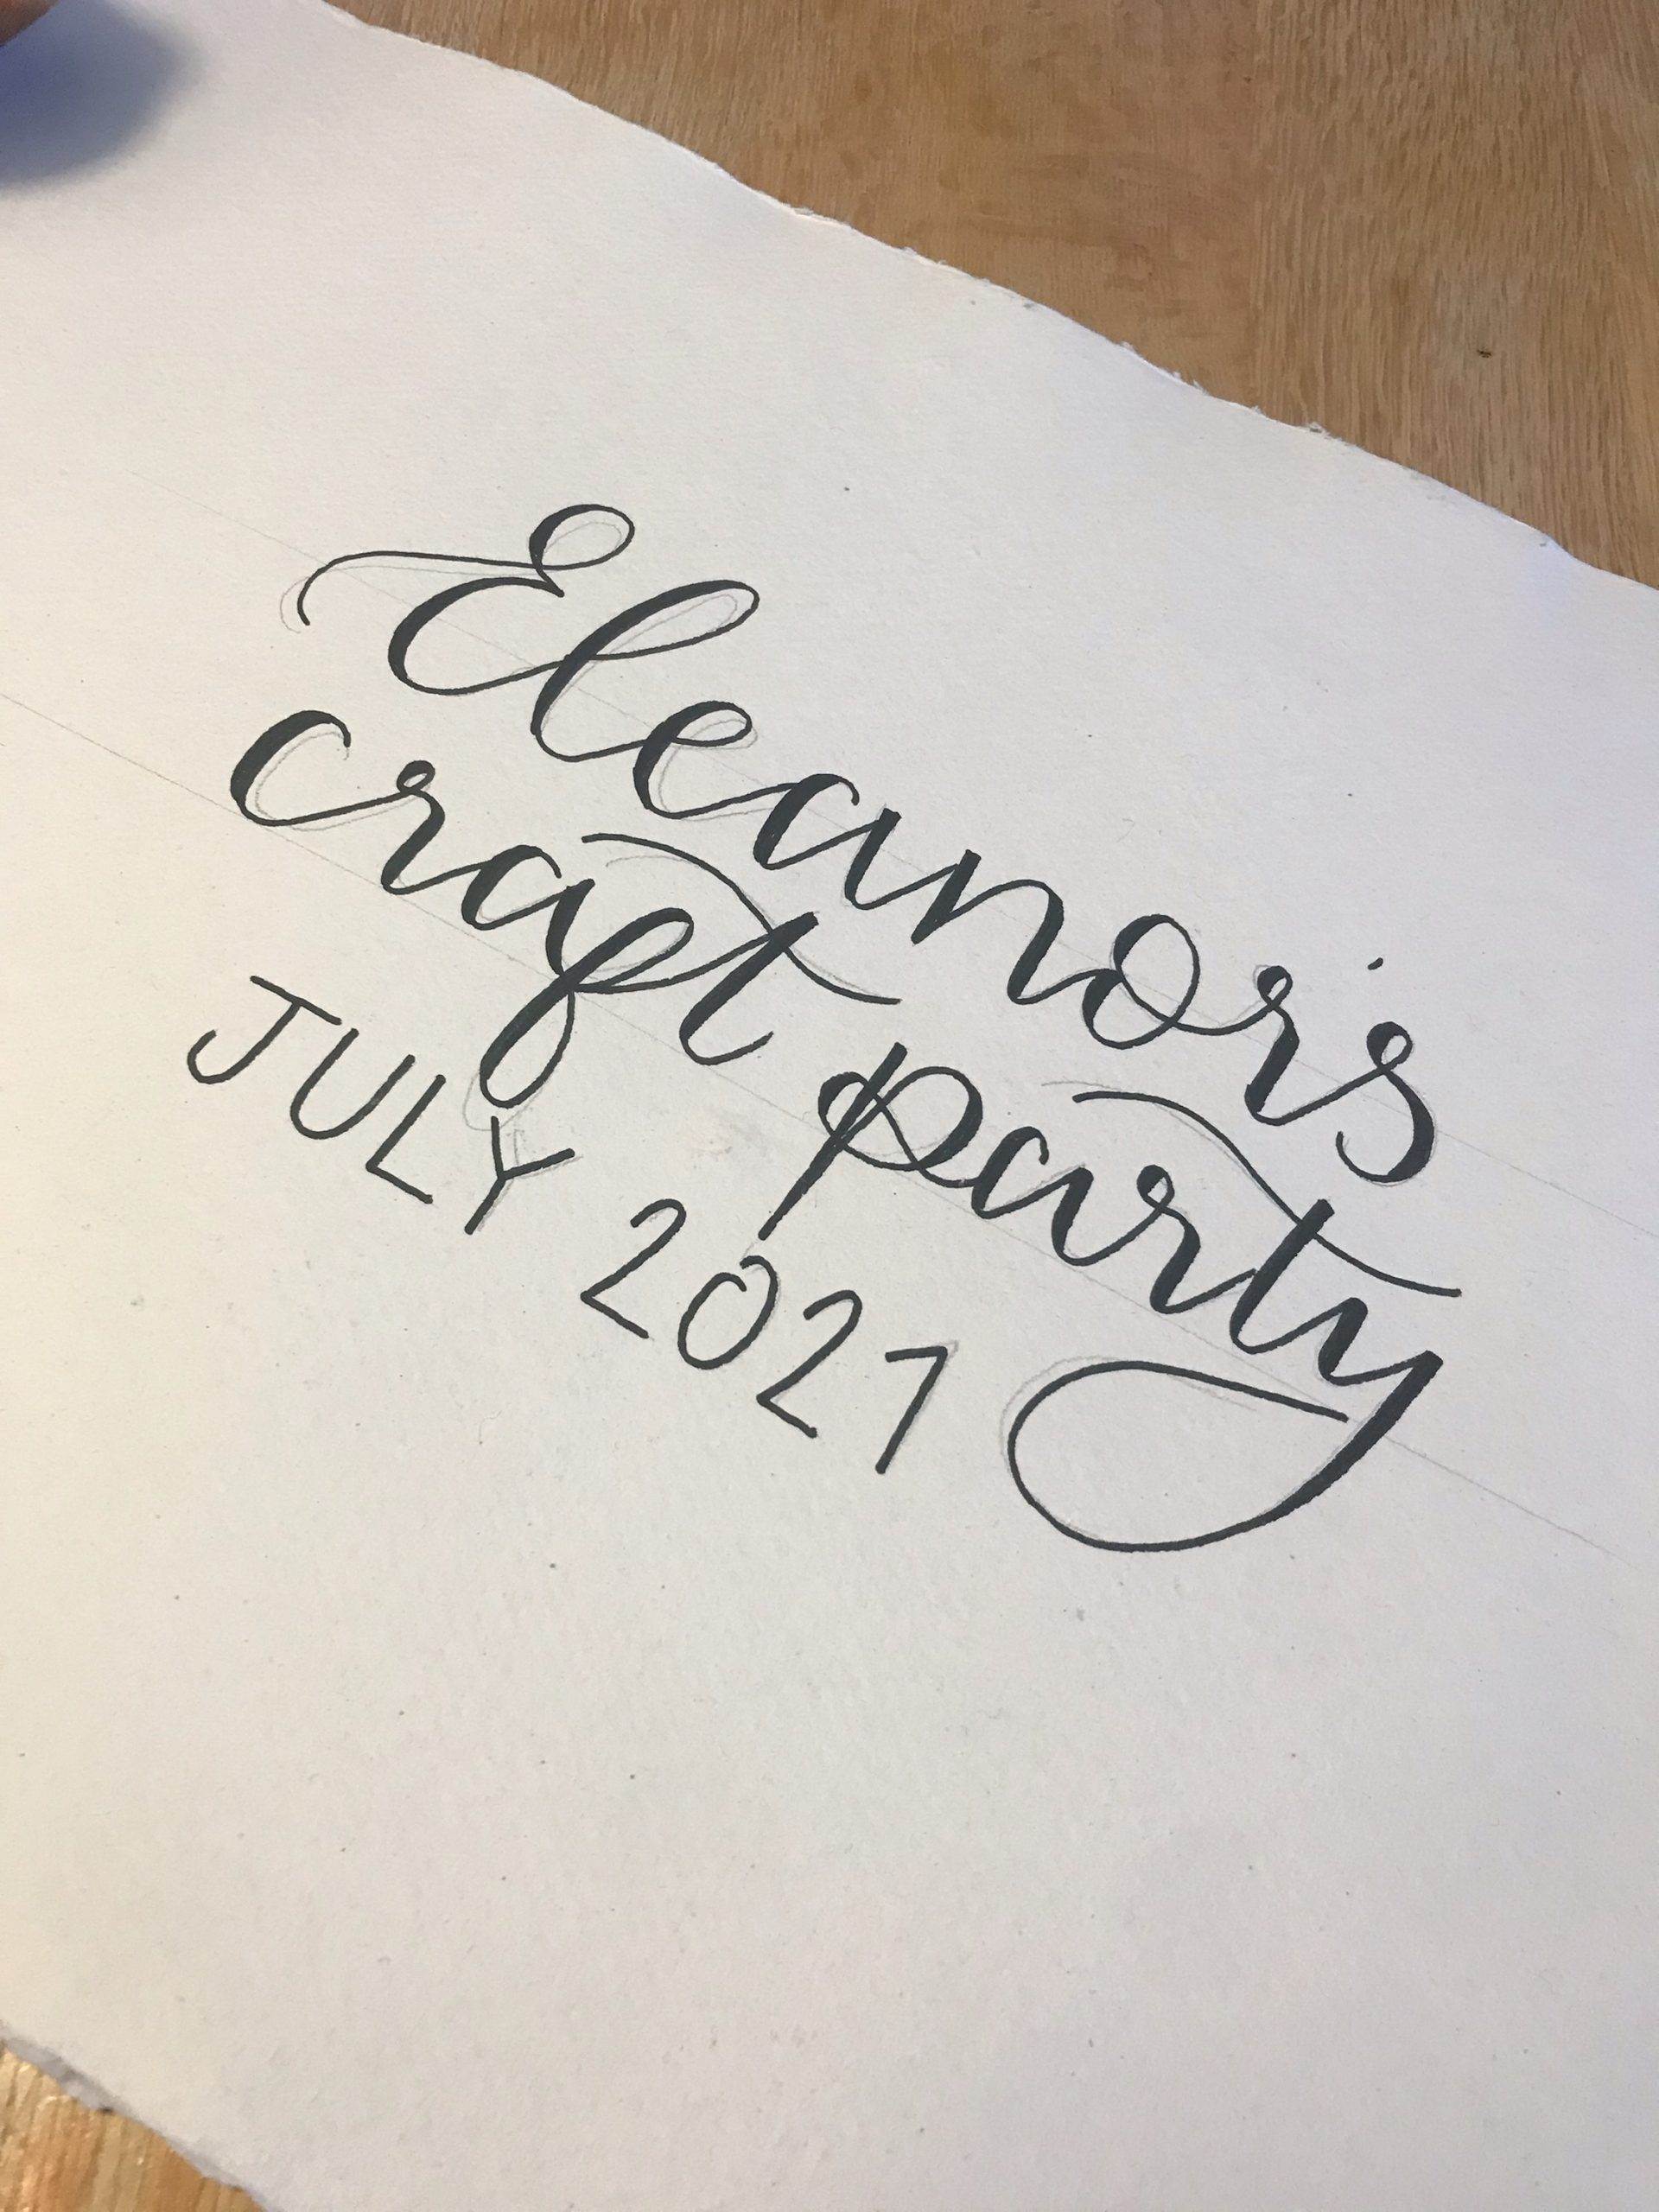 Eleanor's
craft party
JULY 2021